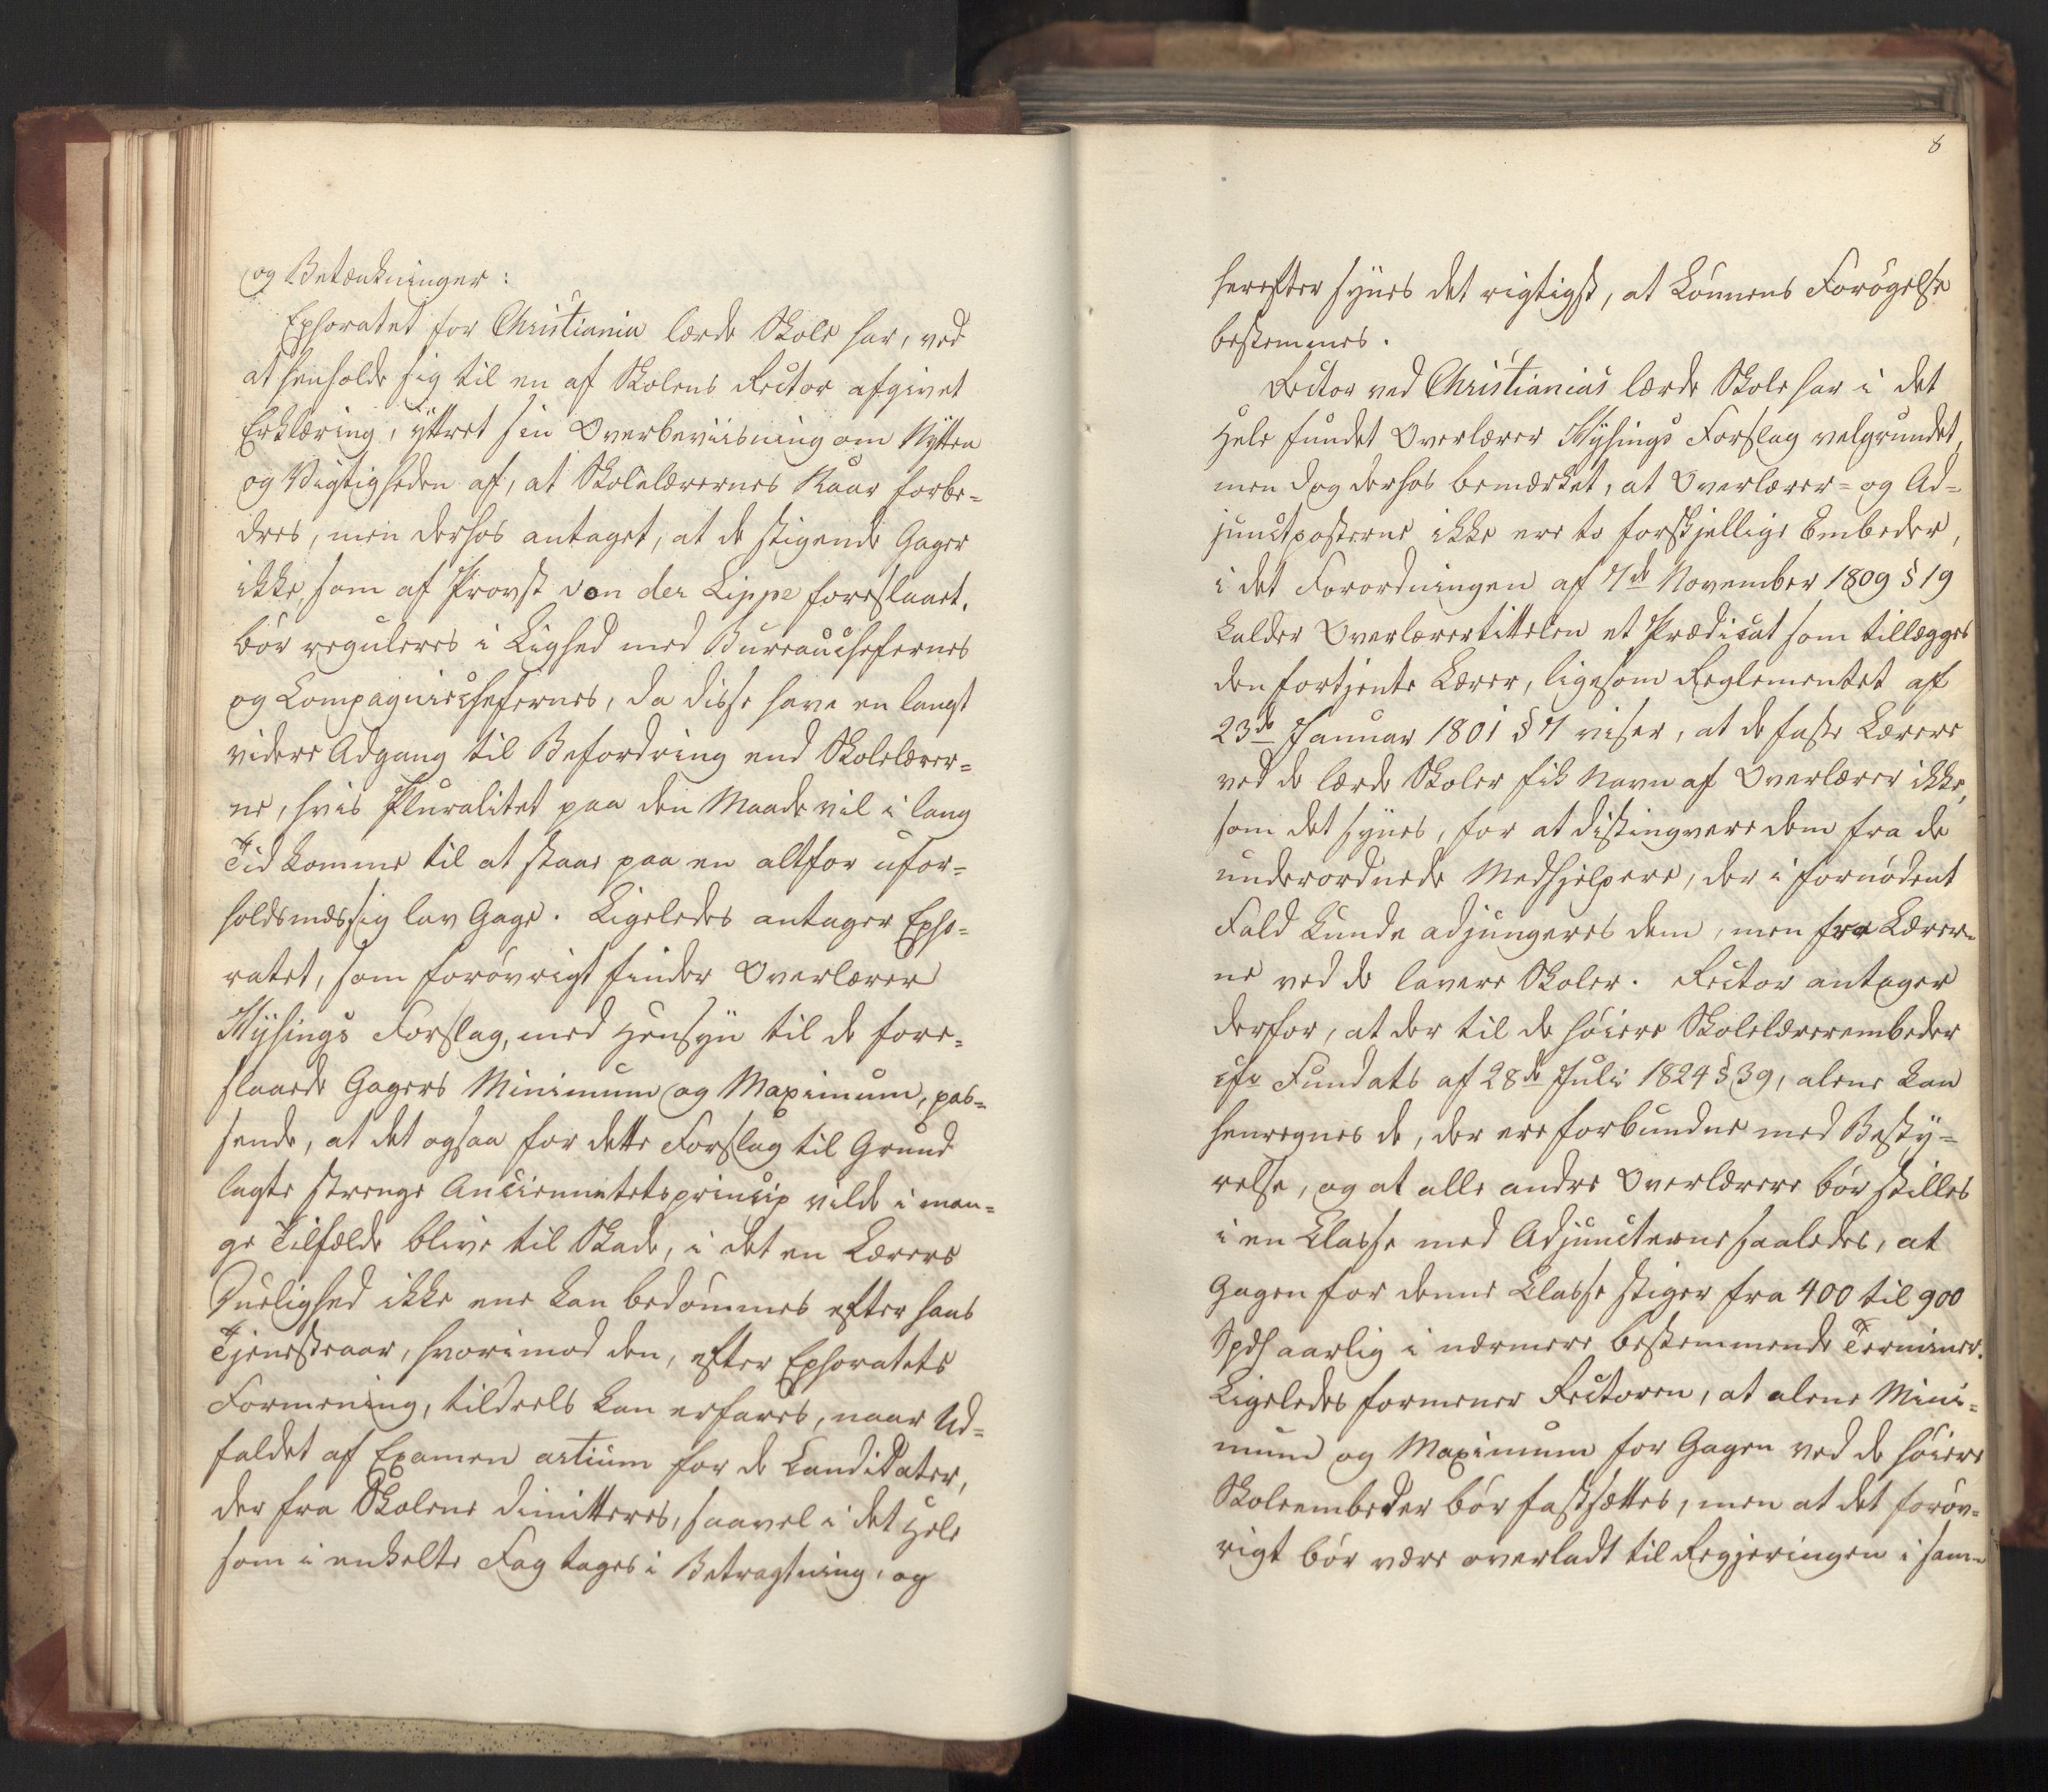 og Betænkninger:
Ephoratet for Christiania lærde Skole har, ved
at henholde sig til en af Skolens Rector afgivet
Erklæring, yttret sin Overbeviisning om Nytten
og Vigtigheden af, at Skolelærernes Kaar forbe-
dres, men derhos antaget, at de stigende Gager
ikke, som af Provst von der Lippe foreslaaet,
bør reguleres i Lighed med Bureauchefernes
og Compagniechefernes, da disse have en langt
videre Adgang til Befordring end Skolelærer-
ne, hvis Pluralitet paa den Maade vil i lang
Tid komme til at staae paa en altfor ufor-
holdsmæssig lav Gage. Ligeledes antager Epho-
ratet, som forøvrigt finder Overlærer
Thysings Forslag, med Hensyn til de fore-
slaaede Gagers Minimum og Maximum, pas-
sende, at det ogsaa for dette Forslag til Grund
lagte strenge Anciennetetsprincip vilde i man-
ge Tilfælde blive til Skade, i det en Lærers
Duelighed ikke ene kan bedømmes efter hans
Tjenesteaar, hvorimod den, efter Ephoratets
Formening, tildeels kan erfares, naar Ud-
faldet af Examen artium for de Candidater,
der fra Skolene dimitteres, saavel i det Hele
som i enkelte Fag tages i Betragtning, og
8
herefter synes det rigtigst, at Lønnens Forøgelse
bestemmes.
Rector ved Christianias lærde Skole har i det
Hele fundet Overlærer Thysings Forslag velgrundet,
men dog derhos bemærket, at Overlærer- og Ad-
junctposterne ikke ere to forskjellige Embeder,
i det Forordningen af 7de November 1809 § 19
kalder Overlærertittelen et Prædicat som tillægges
den fortjente Lærer, ligesom Reglementet af
23de Januar 1801 § 7 viser, at de faste Lærere
ved de lærde Skoler fik Navn af Overlærer ikke,
som det synes, for at distingvere dem fra de
underordnede Medhjelpere, der i fornødent
Fald kunde adjungeres dem, men fra Lærer-
ne ved de lavere Skoler. Rector antager
derfor, at der til de høiere Skolelærerembeder
cfr Fundats af 28de Juli 1824 § 39, alene kan
henregnes de, der ere forbundne med Besty-
relse, og at alle andre Overlærere bør stilles
i en Classe med Adjuncterne saaledes, at
Gagen for denne Classe stiger fra 400 til 900
Spd aarlig i nærmere bestemmende Terminer.
Ligeledes formener Rectoren, at alene Mini-
mum og Maximum for Gagen ved de høiere
Skoleembeder bør fastsættes, men at det forøv-
rigt bør være overladt til Regjeringen i sam-